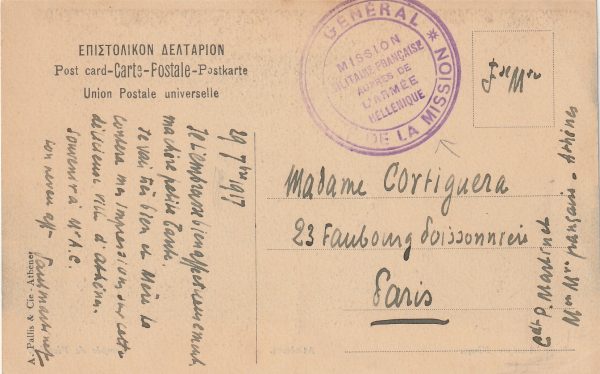 ΕΠΙΣΤΟΛΙΚΟΝ ΔΕΛΤΑΡΙΟΝ
Post card-Carte-Postale-Postkarte
Union Postale universelle
GÉNÉRAL
DE LA MISSION
MISSION
MILITAIRE FRANÇAISE
AUPRÈS DE
L'ARMÉE
HELLÉNIQUE
29 7bre 1917
Je t'embrasse bien affectueusement
ma chère petite Tante.
Je vais très bien et
mes impressions sur cette
ville d'Athènes.
Souvenir à
ton neveu aff
Paul Martinet
A. Pallis & Cie - Athènes
Madame Cortiguera
23 Faubourg Poissonnière
Paris
Cdt P. Martinet
Mon Mre française - Athènes